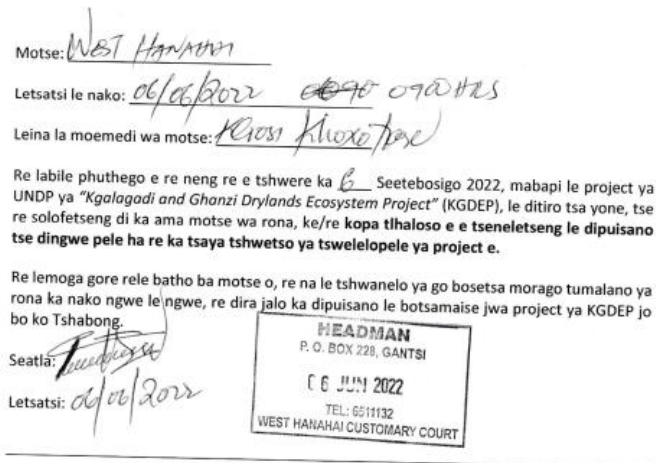 Motse: WEST HANAHAI
Letsatsi le nako: 06/06/2022 0900 HRS
Leina la moemedi wa motse:
Re labile phuthego e re neng re e tshwere ka 6 Seetebosigo 2022, mabapi le project ya
UNDP ya "Kgalagadi and Ghanzi Drylands Ecosystem Project" (KGDEP), le ditiro tsa yone, tse
re solofetseng di ka ama motse wa rona, ke/re kopa tlhaloso e e tseneletseng le dipuisano
tse dingwe pele ha re ka tsaya tshwetso ya tswelelopele ya project e.
Re lemoga gore rele batho ba motse o, re na le tshwanelo ya go bosetsa morago tumalano ya
rona ka nako ngwe le ngwe, re dira jalo ka dipuisano le botsamaise jwa project ya KGDEP jo
bo ko Tshabong.
Seatla:
Letsatsi: 06/06/2022
HEADMAN
P. O. BOX 228, GANTSI
06 JUN 2022
TEL: 6511132
WEST HANAHAI CUSTOMARY COURT